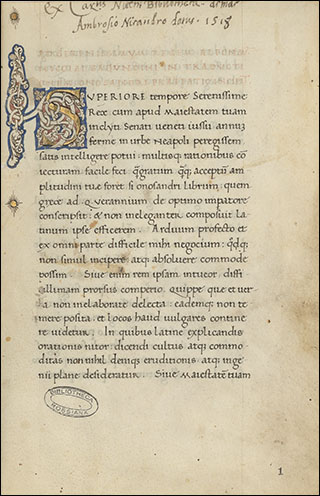 ex
Ambrosio Nicandro donus · 1518
SUPERIORE tempore Serenissime
Rex cum apud Maiestatem tuam
inclyti Senati veneti iussu annuz
ferme in urbe Neapoli peregissem
satis intelligere potui: multisq; rationibus con
iecturam facile feci q̃gratum q̃q; acceptũ am
plitudini tuæ foret si onosandri librum: quem
grece ad q. verannium de optimo impatore
conscripsit: & non ineleganter composuit la
tinum ipse efficerem. Arduum profecto et
ex omni parte difficile mihi negocium: q̃dq;
non simul incipere atq; absoluere commode
possim. Siue enim rem ipsam intueor diffi
cillimam prorsus comperio. quippe que et ver
ba non inelaborate delecta: eademq; non te
mere posita: et locos haud vulgares contine
re videtur. In quibus latine explicandis
orationis nitor: dicendi cultus atq; commo
ditas: non nihil deniq; eruditionis: atq; inge
nii plane desideratur. Siue Maiestatem tuam
BIBLIOTHECA
ROSSIANA
1